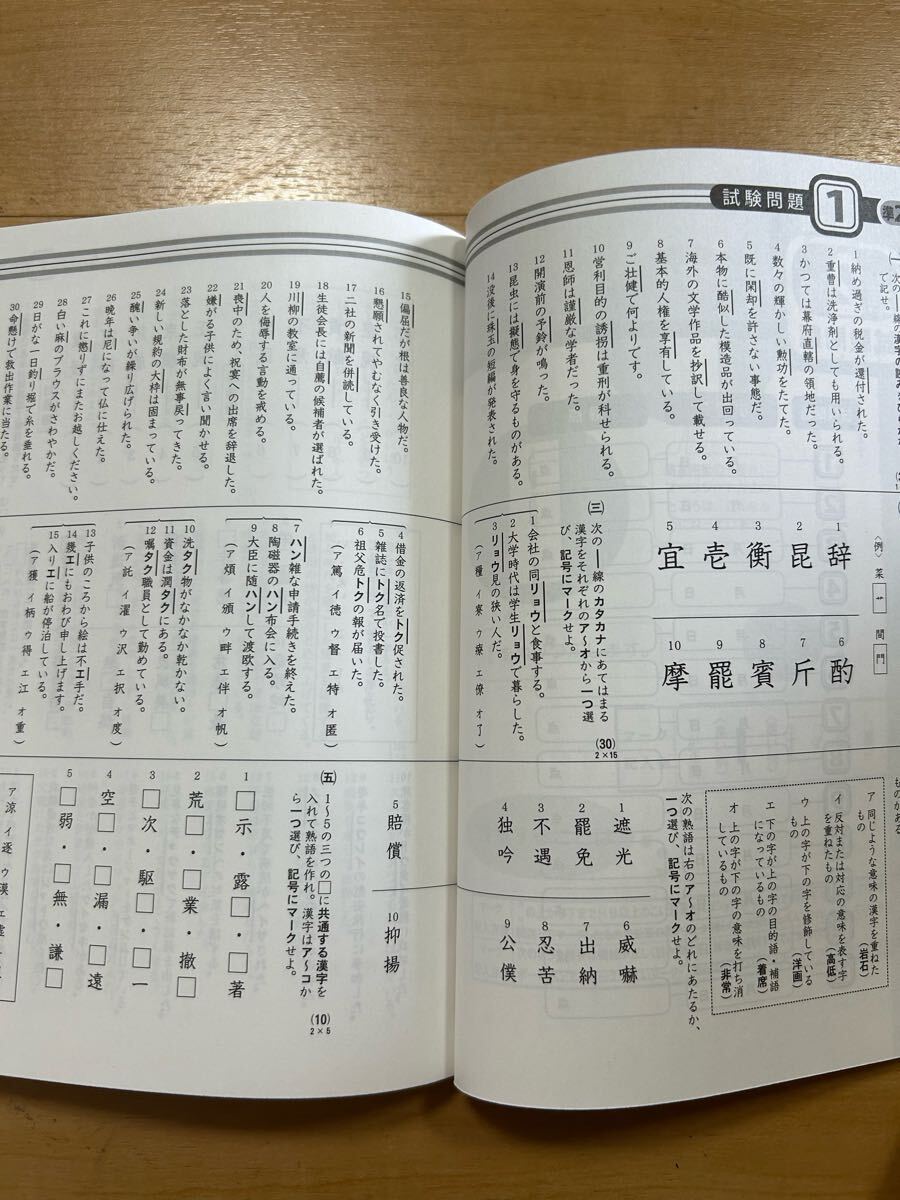 試験問題 1 準2
(一) 次の――線の漢字の読みをひらがな
て記せ。
1 納め過ぎの税金が還付された。
2 重曹は洗浄剤としても用いられる。
3 かつては幕府直轄の領地だった。
4 数々の輝かしい勲功をたてた。
5 既に閑却を許さない事態だ。
6 本物に酷似した模造品が出回っている。
7 海外の文学作品を抄訳して載せる。
8 基本的人権を享有している。
9 ご壮健で何よりです。
10 営利目的の誘拐は重刑が科せられる。
11 恩師は謹厳な学者だった。
12 開演前の予鈴が鳴った。
13 昆虫には擬態で身を守るものがある。
14 没後に珠玉の短編が発表された。
15 偏屈だが根は善良な人物だ。
16 懇願されてやむなく引き受けた。
17 二社の新聞を併読している。
18 生徒会長には自薦の候補者が選ばれた。
19 川柳の教室に通っている。
20 人を侮辱する言動を戒める。
21 喪中のため、祝宴への出席を辞退した。
22 嫌がる子供によく言い聞かせる。
23 落とした財布が無事戻ってきた。
24 新しい規約の大枠は固まっている。
25 醜い争いが繰り広げられた。
26 晩年は尼になって仏に仕えた。
27 これに懲りずにまたお越しください。
28 白い麻のブラウスがさわやかだ。
29 日がな一日釣り堀で糸を垂れる。
30 命懸けで救出作業に当たる。
〈例〉 菜 艹 間 門
1 辞
2 昆
3 衡
4 壱
5 宜
6 酌
7 斤
8 賓
9 罷
10 摩
(三) 次の――線のカタカナにあてはまる
漢字をそれぞれのア～オから一つ選
び、記号にマークせよ。
(30)
2×15
1 会社の同リョウと食事する。
2 大学時代は学生リョウで暮らした。
3 リョウ見の狭い人だ。
(ア 種 イ 寮 ウ 療 エ 僚 オ 了)
4 借金の返済をトク促された。
5 雑誌にトク名で投書した。
6 祖父危トクの報が届いた。
(ア 篤 イ 徳 ウ 督 エ 特 オ 匿)
7 ハン雑な申請手続きを終えた。
8 陶磁器のハン布会に入る。
9 大臣に随ハンして渡欧する。
(ア 煩 イ 頒 ウ 畔 エ 伴 オ 帆)
10 洗タク物がなかなか乾かない。
11 資金は潤タクにある。
12 嘱タク職員として勤めている。
(ア 託 イ 濯 ウ 沢 エ 択 オ 度)
13 子供のころから絵は不エ手だ。
14 幾エにもおわび申し上げます。
15 入りエに船が停泊している。
(ア 獲 イ 柄 ウ 得 エ 江 オ 重)
ものがある。
ア 同じような意味の漢字を重ねた
もの (岩石)
イ 反対または対応の意味を表す字
を重ねたもの (高低)
ウ 上の字が下の字を修飾している
もの (洋画)
エ 下の字が上の字の目的語・補語
になっているもの (着席)
オ 上の字が下の字の意味を打ち消
しているもの (非常)
次の熟語は右のア～オのどれにあたるか、
一つ選び、記号にマークせよ。
1 遮光
2 罷免
3 不遇
4 独吟
5 賠償
6 威嚇
7 出納
8 忍苦
9 公僕
10 抑揚
(五) 1～5の三つの□に共通する漢字を
入れて熟語を作れ。漢字はア～コか
ら一つ選び、記号にマークせよ。
(10)
2×5
1 □示・露□・□著
2 荒□・□業・撤□
3 □次・駆□・□一
4 空□・□漏・□遠
5 □弱・□無・謙□
ア 涼 イ 逐 ウ 漠 エ 虚